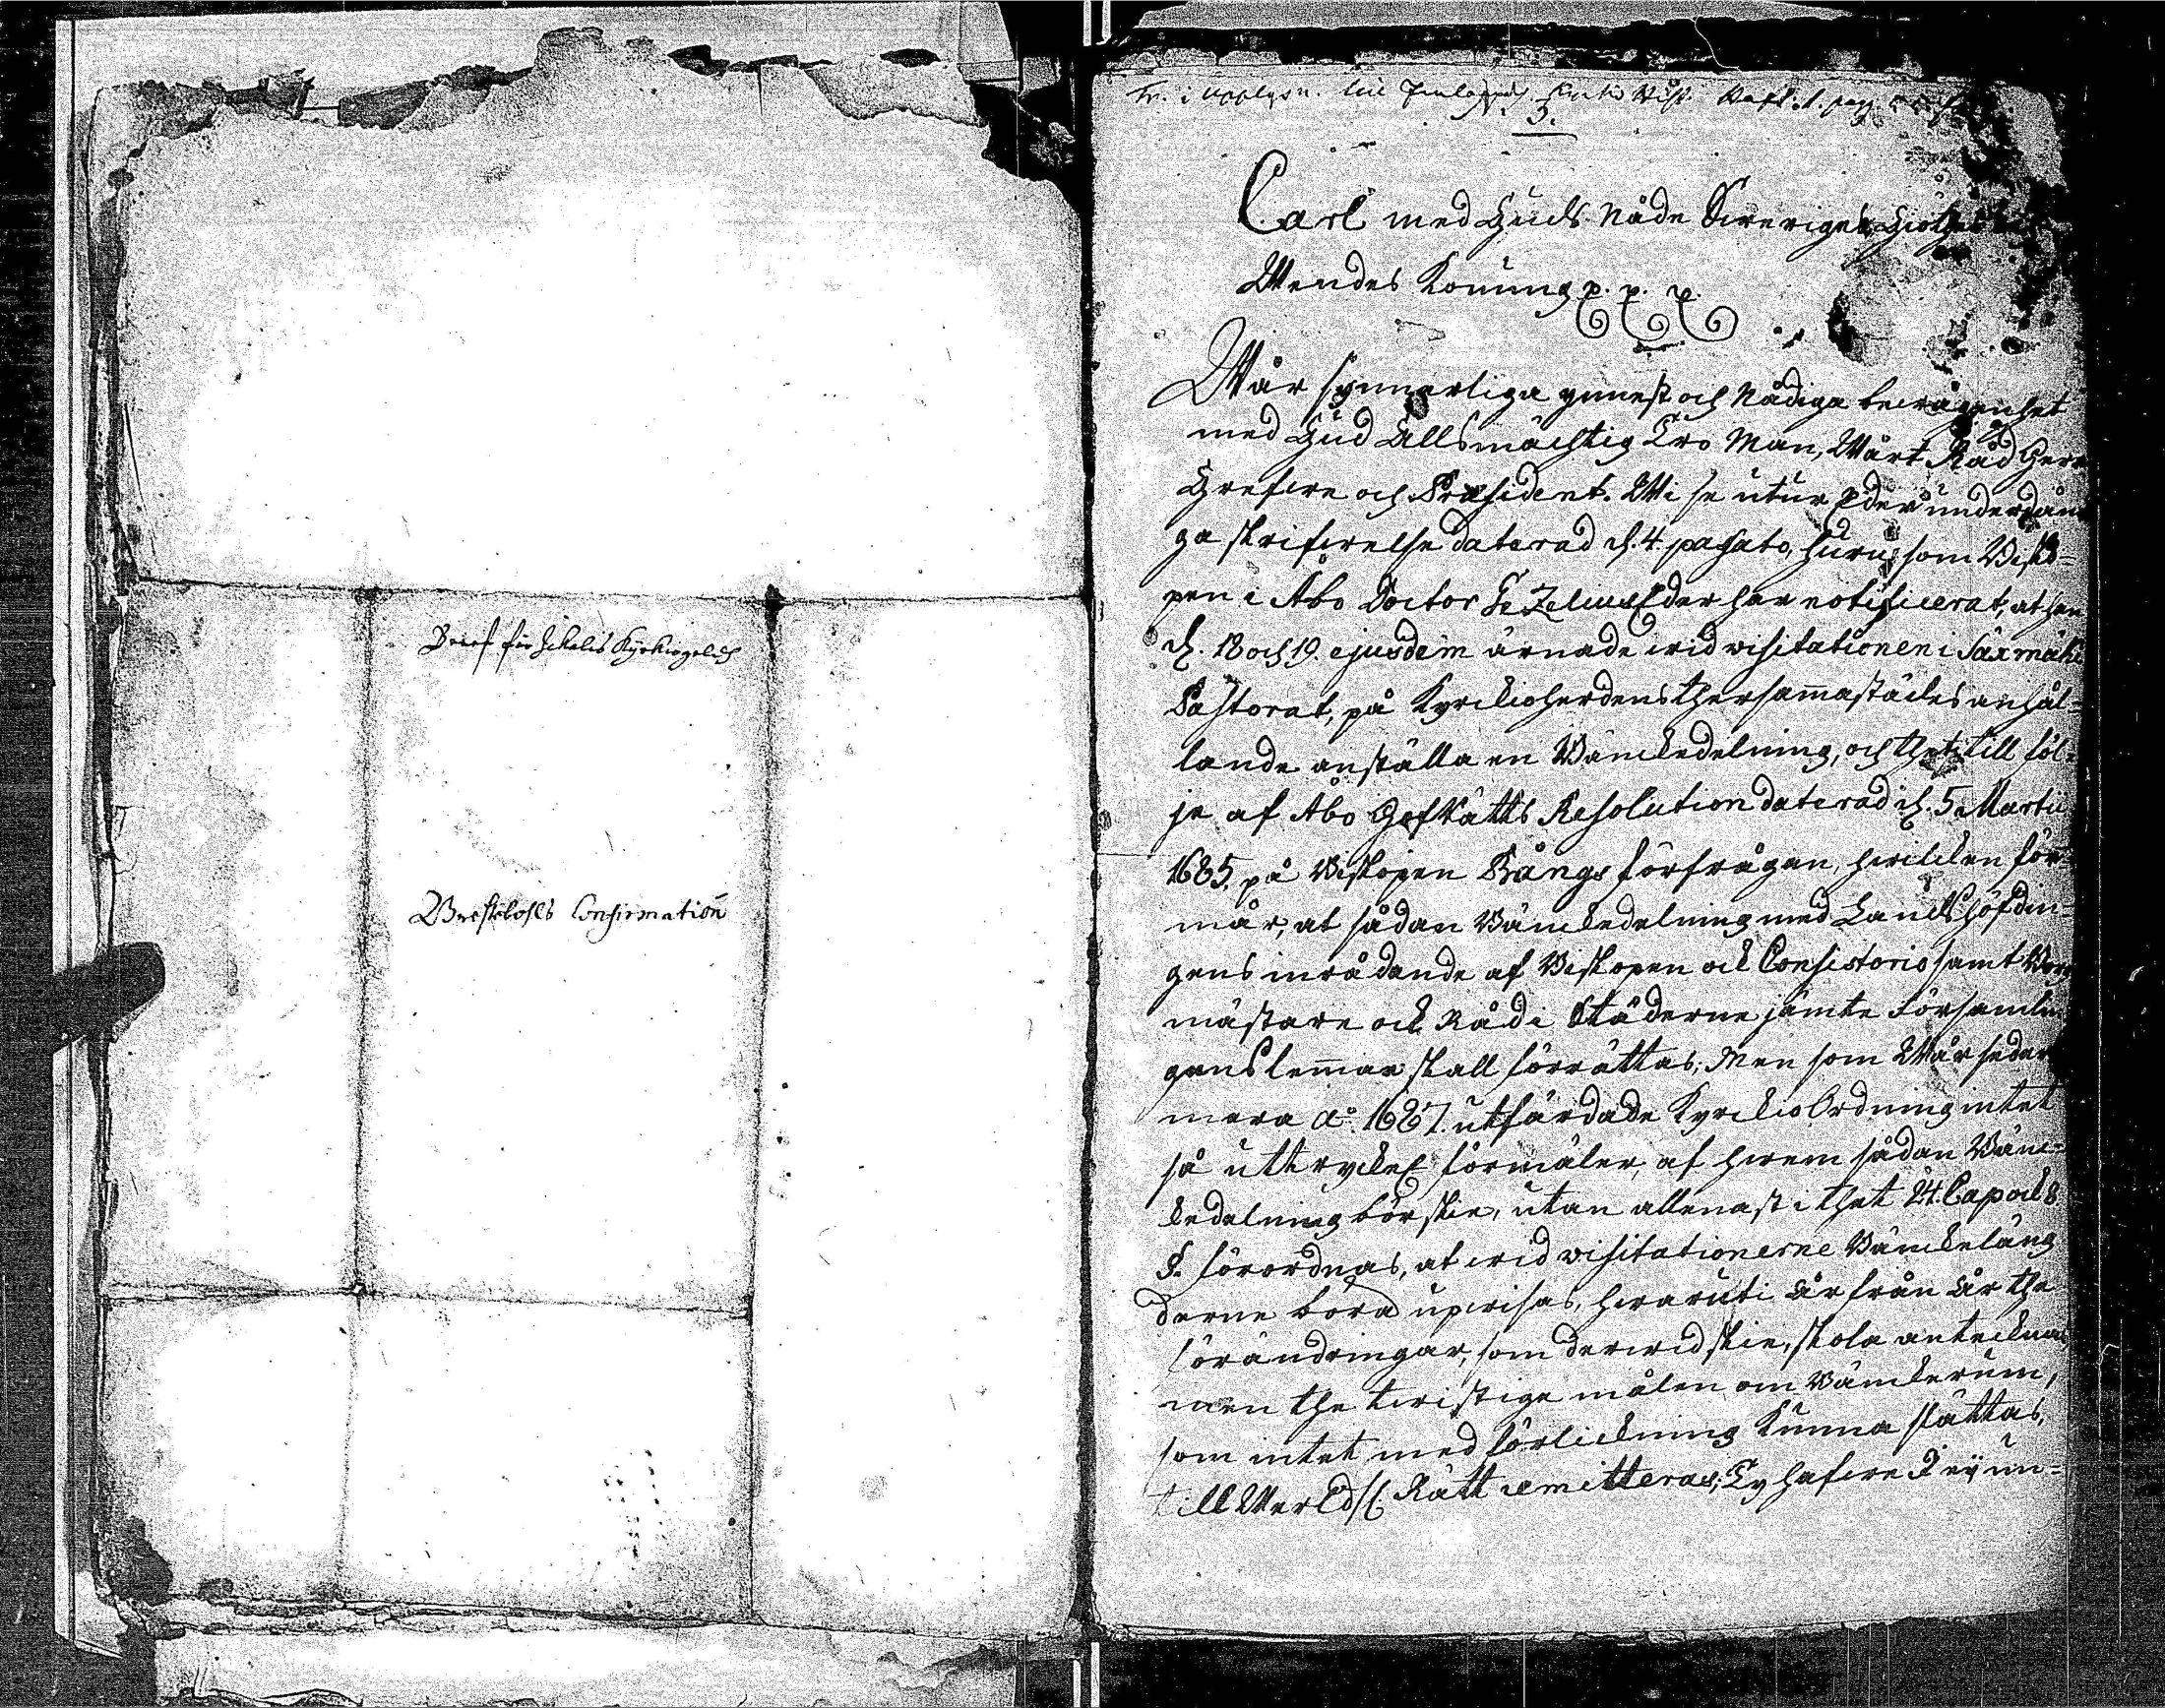 Bref för Kyrkogeld
Brefkloks Confirmation
Tr. i Upplysn. till
3.
Carl med Guds Nåde Sweriges Giöthes
Wendes Konung p. p. p.
Wår synnerliga ynnest och Nådiga bewågenhet
med Gud Allsmächtig Tro Man, Wårt Råd Herr
Grefwe och Præsident. Wi se utur Eder underdåni
ga skrifwelse daterad d. 4. passato, huru som Bisko-
pen i Åbo Doctor Gezelius Eder har notificerat, at han
d. 18 och 19. ejusdem ärnade wid visitationen i Säxmäki
Pastorat, på Kyrckioherdens thersammastädes anhål-
lande anställa en Bänckedelning, och thet till föl-
je af Åbo HofRätts Resolution daterad d. 5 Martii
1685. på Biskopen Bångs förfrågan, hwilcken för-
mår, at sådan Bänckedelning med Landshöfdin-
gens inrådande af Biskopen och Consistorio samt Borg
mästare och Råd i Städerne jämte Församlin
gens lemmar skall förrättas; Men som Wår seder
mera Ao. 1687. utfärdade KyrckioOrdning intet
så uttryckel. förmäler, af hwem sådan Bänc-
kedelning bör skie, utan allenast i thet 24. Cap och 8
§. förordnas, at wid visitationerne Bänckeläng
derne böra upwisas, hwaruti År från År the
förändringar, som derwid skie, skola antecknas
men the twistige målen om Bänckerum,
som intet med förlickning kunna slättas,
till Werldsl. Rätt remitteras; Ty hafwe I ey un-